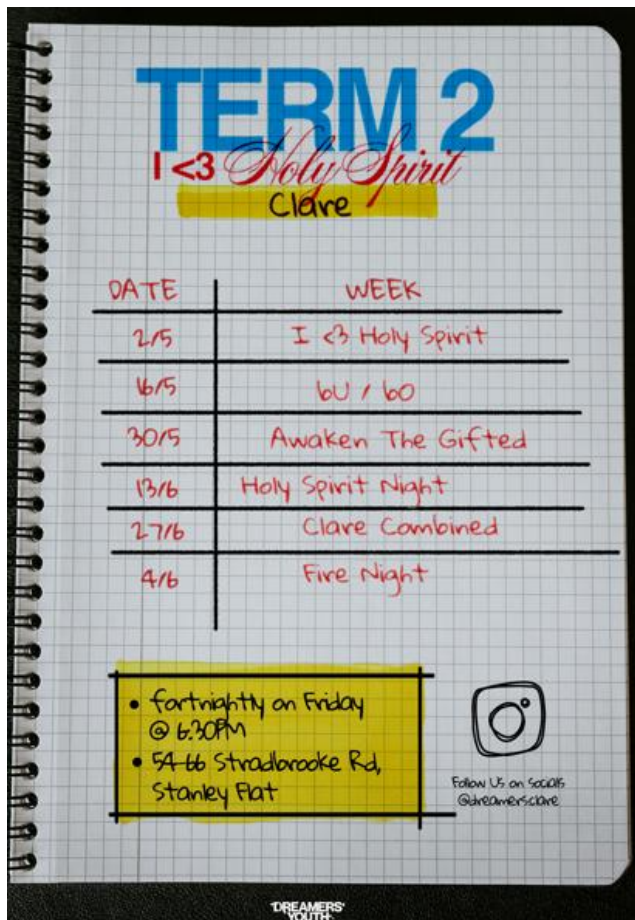 TERM 2
I <3 Holy Spirit
Clare
DATE WEEK
2/5 I <3 Holy Spirit
16/5 6U / 60
30/5 Awaken The Gifted
13/6 Holy Spirit Night
27/6 Clare Combined
4/6 Fire Night
• fortnightly on Friday
@ 6.30PM
• 54-66 Stradbrooke Rd,
Stanley Flat
Follow Us on Socials
@dreamersclare
DREAMERS'
YOUTH